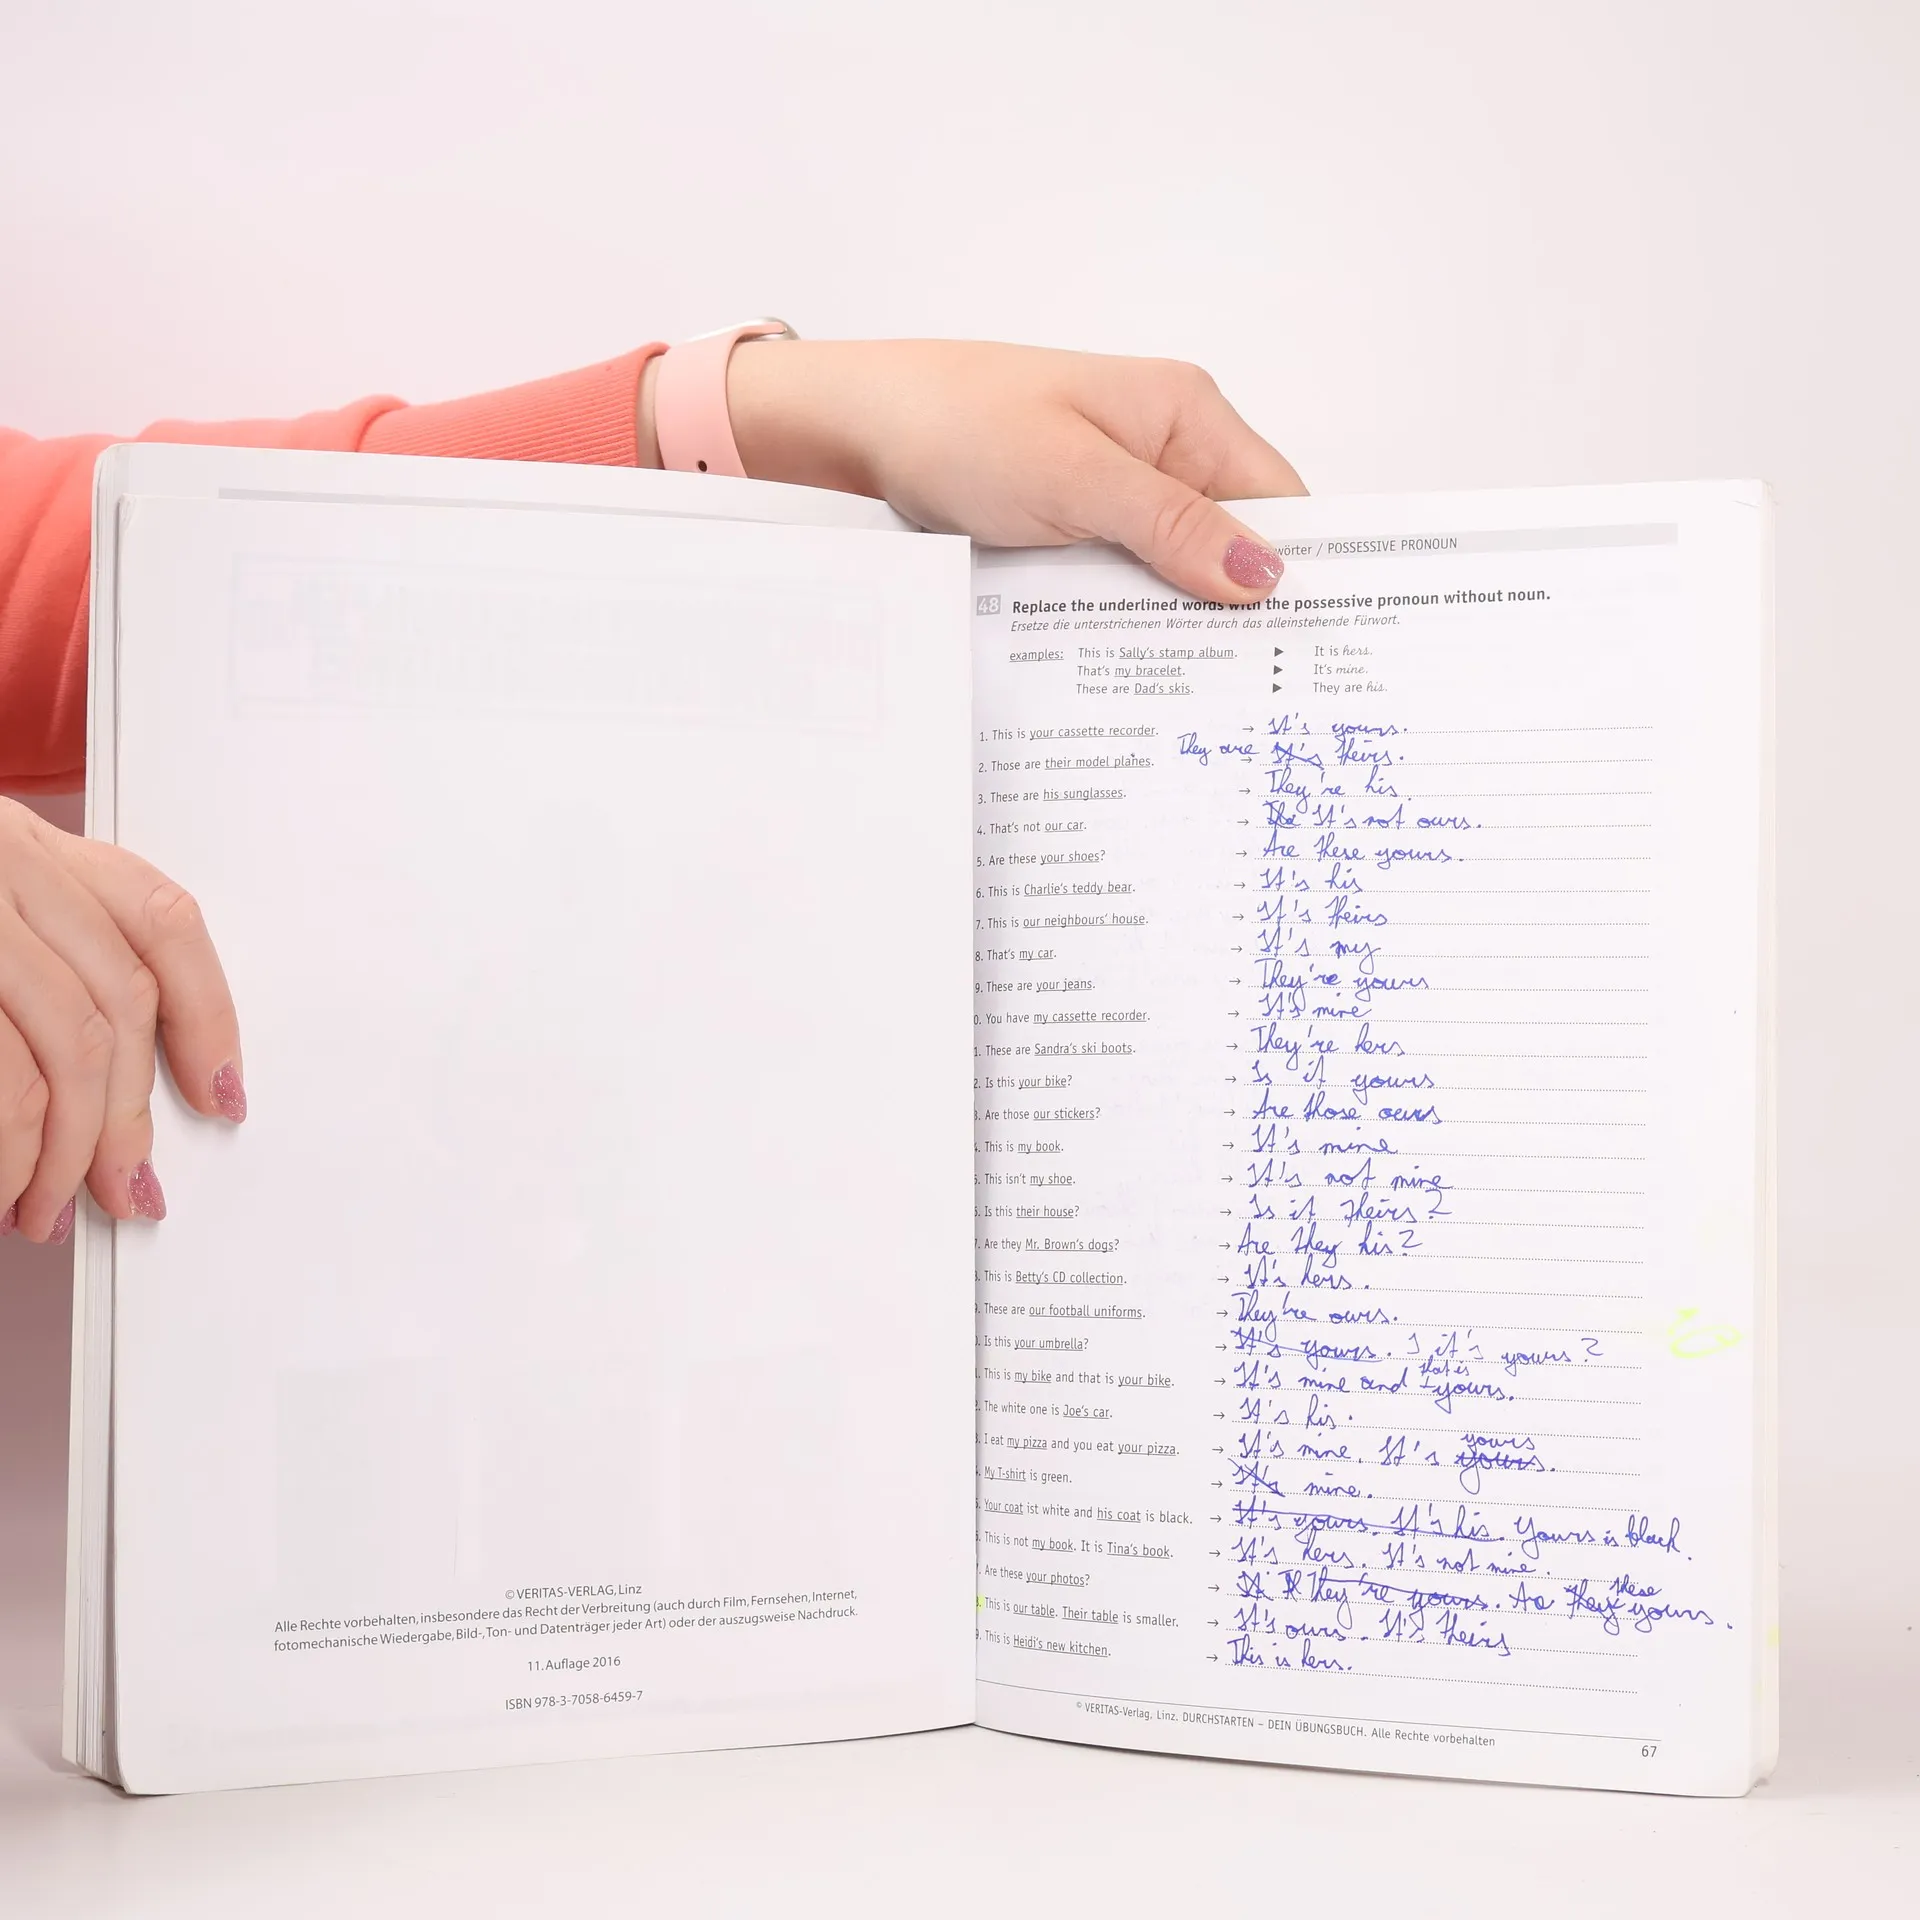 © VERITAS-VERLAG, Linz
Alle Rechte vorbehalten, insbesondere das Recht der Verbreitung (auch durch Film, Fernsehen, Internet,
fotomechanische Wiedergabe, Bild-, Ton- und Datenträger jeder Art) oder der auszugsweise Nachdruck.
11. Auflage 2016
ISBN 978-3-7058-6459-7
wörter / POSSESSIVE PRONOUN
48 Replace the underlined words with the possessive pronoun without noun.
Ersetze die unterstrichenen Wörter durch das alleinstehende Fürwort.
examples: This is Sally's stamp album. ▶ It is hers.
That's my bracelet. ▶ It's mine.
These are Dad's skis. ▶ They are his.
1. This is your cassette recorder. → It's yours.
2. Those are their model planes. They are → It's theirs.
3. These are his sunglasses. → They're his.
4. That's not our car. → It's not ours.
5. Are these your shoes? → Are these yours.
6. This is Charlie's teddy bear. → It's his
7. This is our neighbours' house. → It's theirs
8. That's my car. → It's my
9. These are your jeans. → They're yours
0. You have my cassette recorder. → It's mine
1. These are Sandra's ski boots. → They're hers
2. Is this your bike? → Is it yours
3. Are those our stickers? → Are those ours
. This is my book. → It's mine
. This isn't my shoe. → It's not mine
. Is this their house? → Is it theirs?
. Are they Mr. Brown's dogs? → Are they his?
. This is Betty's CD collection. → It's hers.
. These are our football uniforms. → They're ours.
. Is this your umbrella? → It's yours. it's yours?
. This is my bike and that is your bike. → It's mine and that is yours.
. The white one is Joe's car. → It's his.
. I eat my pizza and you eat your pizza. → It's mine. It's yours yours.
. My T-shirt is green. → It's mine.
. Your coat ist white and his coat is black. → It's yours. It's his. Yours is black.
. This is not my book. It is Tina's book. → It's hers. It's not mine.
. Are these your photos? → They're yours. they these yours.
. This is our table. Their table is smaller. → It's ours. It's theirs
9. This is Heidi's new kitchen. → This is hers.
© VERITAS-Verlag, Linz. DURCHSTARTEN – DEIN ÜBUNGSBUCH. Alle Rechte vorbehalten
67